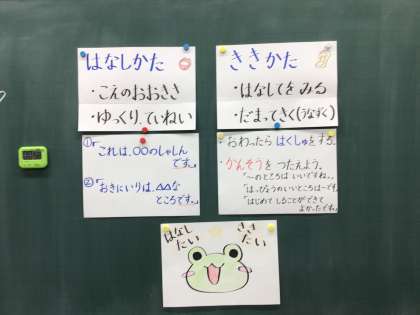 はなしかた
・こえのおおきさ
・ゆっくり、ていねい
①「これは、〇〇のしゃしん
です。」
②「おきにいりは、△△な
ところです。」
ききかた
・はなしてをみる
・だまってきく(うなずく)
・おわったら はくしゅをする。
・かんそうを つたえよう。
「〜のところは いいですね。」
「はっぴょうのいいところは〜です。」
「はじめて しることができて
よかったです。」
はなし
たい
きき
たい